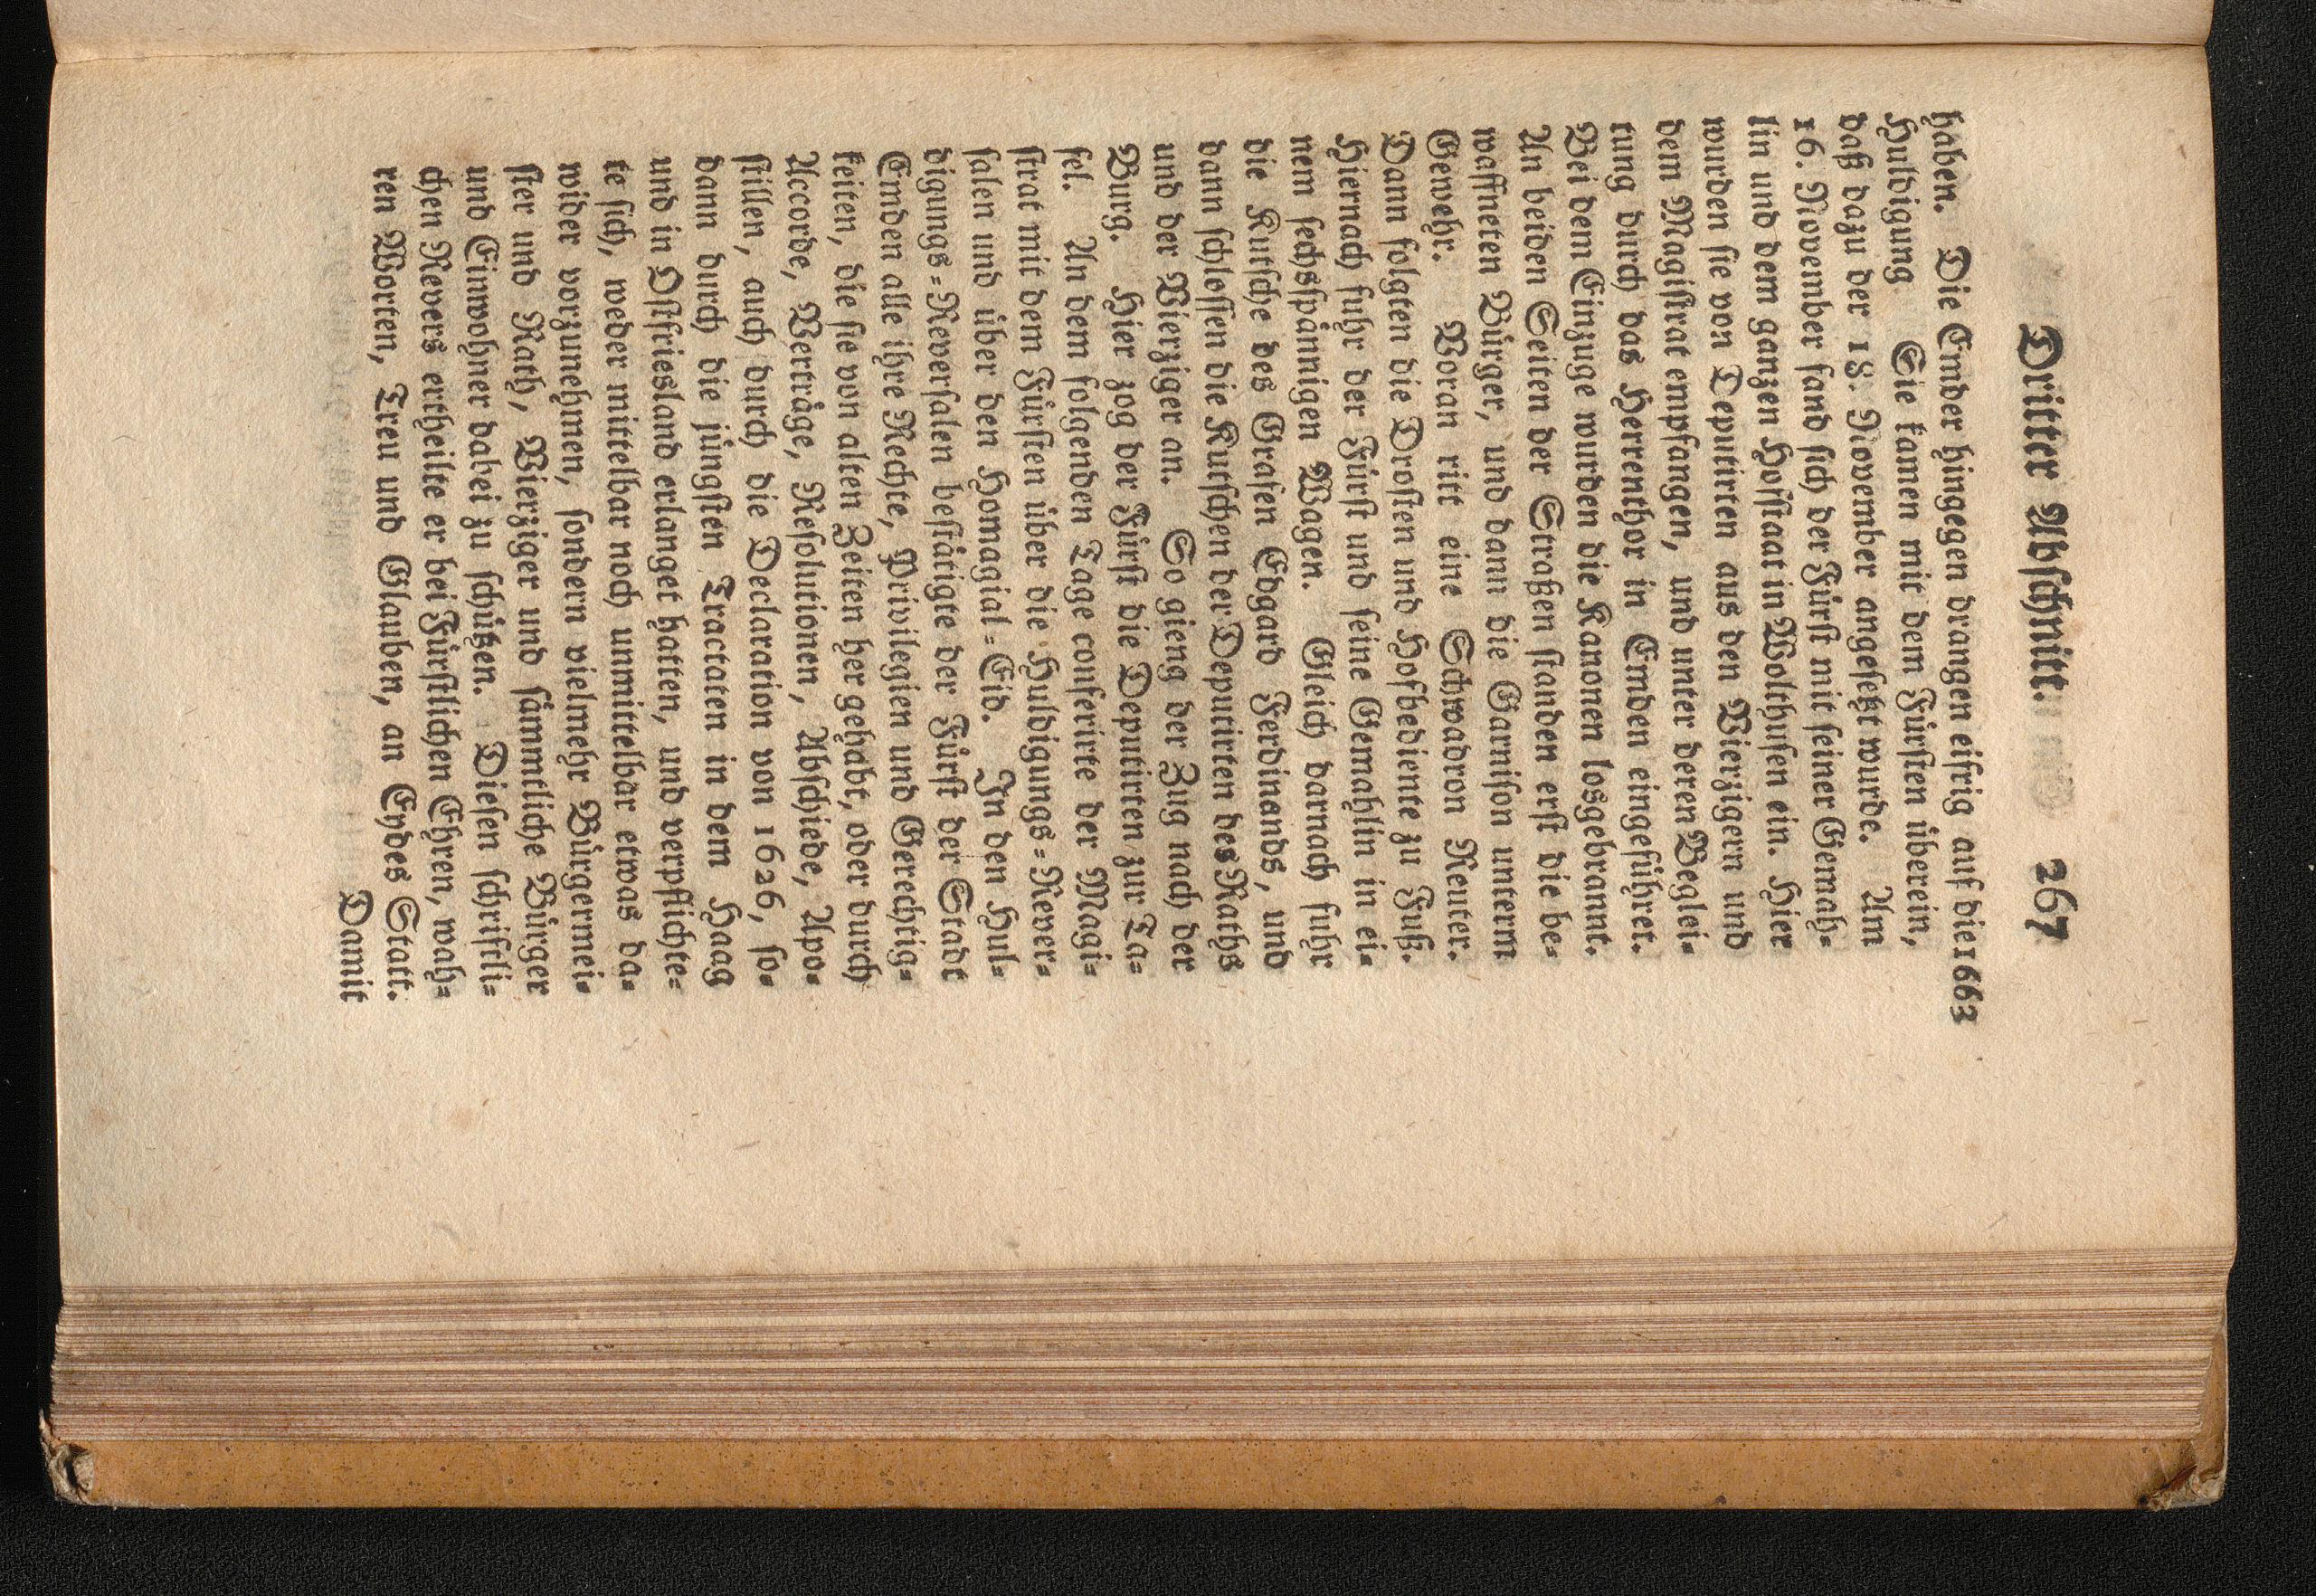 Dritter Abschnitt. 267
haben. Die Emder hingegen drangen eifrig auf die 1663
Huldigung Sie kamen mit dem Fürsten überein,
daß dazu der 18. November angesetzt wurde. Am
16. November fand sich der Fürst mit seiner Gemah-
lin und dem ganzen Hofstaat in Wolthusen ein. Hier
wurden sie von Deputirten aus den Vierzigern und
dem Magistrat empfangen, und unter deren Beglei-
tung durch das Herrenthor in Emden eingeführet.
Bei dem Einzuge wurden die Kanonen losgebrannt.
An beiden Seiten der Straßen standen erst die be-
waffneten Bürger, und dann die Garnison unterm
Gewehr. Voran ritt eine Schwadron Reuter.
Dann folgten die Drosten und Hofbediente zu Fuß.
Hiernach fuhr der Fürst und seine Gemahlin in ei-
nem sechsspännigen Wagen. Gleich darnach fuhr
die Kutsche des Grafen Edgard Ferdinands, und
dann schlossen die Kutschen der Deputirten des Raths
und der Vierziger an. So gieng der Zug nach der
Burg. Hier zog der Fürst die Deputirten zur Ta-
fel. An dem folgenden Tage conferirte der Magi-
strat mit dem Fürsten über die Huldigungs-Rever-
salen und über den Homagial-Eid. In den Hul-
digungs-Reversalen bestätigte der Fürst der Stadt
Emden alle ihre Rechte, Privilegien und Gerechtig-
keiten, die sie von alten Zeiten her gehabt, oder durch
Accorde, Verträge, Resolutionen, Abschiede, Apo-
stillen, auch durch die Declaration von 1626, so-
dann durch die jüngsten Tractaten in dem Haag
und in Ostfriesland erlanget hatten, und verpflichte-
te sich, weder mittelbar noch unmittelbar etwas da-
wider vorzunehmen, sondern vielmehr Bürgermei-
ster und Rath, Vierziger und sämmtliche Bürger
und Einwohner dabei zu schützen. Diesen schriftli-
chen Revers ertheilte er bei Fürstlichen Ehren, wah-
ren Worten, Treu und Glauben, an Eydes Statt.
Damit